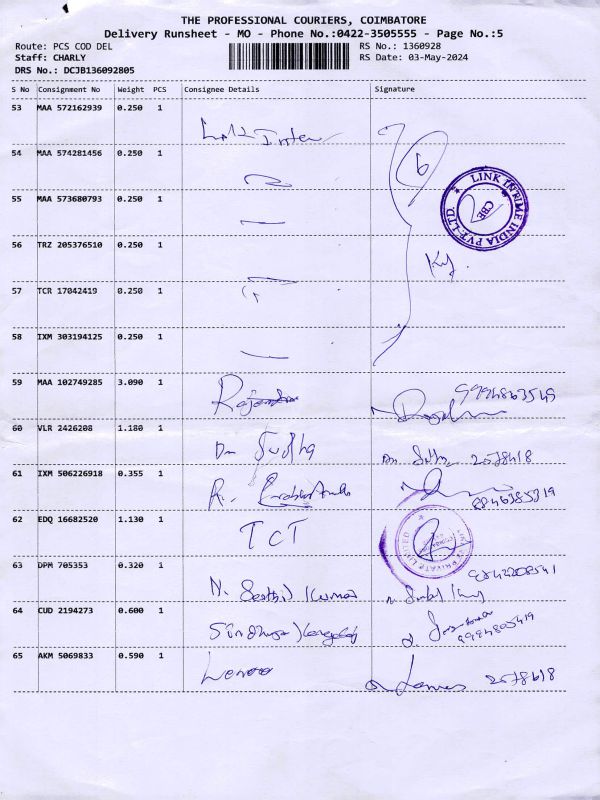 THE PROFESSIONAL COURIERS, COIMBATORE
Delivery Runsheet - MO - Phone No.:0422-3505555 - Page No.:5
Route: PCS COD DEL RS No.: 1360928
Staff: CHARLY RS Date: 03-May-2024
DRS No.: DCJB136092805
S No Consignment No Weight PCS Consignee Details Signature
53 MAA 572162939 0.250 1
54 MAA 574281456 0.250 1
55 MAA 573680793 0.250 1
LINK INTIME INDIA PVT. LTD. CBE
56 TRZ 205376510 0.250 1
57 TCR 17042419 0.250 1
58 IXM 303194125 0.250 1
59 MAA 102749285 3.090 1
60 VLR 2426208 1.180 1 Dr Sudha 2578418
61 IXM 506226918 0.355 1 R.
62 EDQ 16682520 1.130 1 TCT
PRIVATE LIMITED
63 DPM 705353 0.320 1 N. Senthil Kumar
64 CUD 2194273 0.600 1
65 AKM 5069833 0.590 1